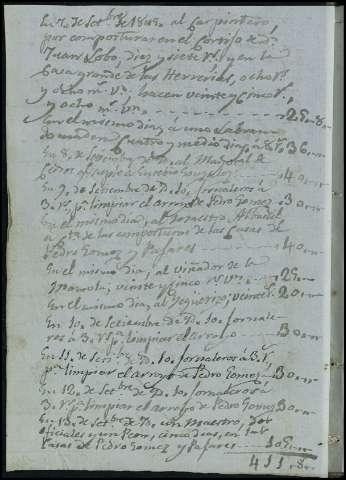 En 7. de Setbre de 1845. al Carpintero,
por composturas en el Cortijo de Dn
Juan Lobo, diez y siete rs. y en la
Casa grande de las Herrerias, ocho rs.
y ocho ms. vn. hacen veinte y cinco rs.
y ocho ms. vn. 25..8..
En el mismo dia, á uno
cuatro y medio dias, á 8 rs. 36..
En 8. de Setiembre de D. al Mayoral de
40..
En 9, de Setiembre de D. 10. jornaleros á
3. rs. pa. limpiar el arroyo de Pedro Gomez 30..
En el mismo dia, al Maestro Albañil
á cta. de las composturas de las Casas de
Pedro Gomez y Pajares 40..
En el mismo dia, al viñador de la
veinte y cinco rs. vn. 25..
En el mismo dia, al Yeguerizo, veinte rs. 20..
En 10. de Setiembre de D. 10. jornale-
ros á 3. rs. pa. limpiar el arroyo 30..
En 11. de Setbre. de D. 10. jornaleros á 3. rs.
pa. limpiar el arroyo de Pedro Gomez 30..
En 12. de Setbre. de D. 10. jornaleros á
3. rs. pa. limpiar el arroyo de Pedro Gomez 30..
En 13. de Setbre. de D. un Maestro, dos
oficiales y un Peon, cinco dias, en las
Casas de Pedro Gomez y Pajares 105..
411..8..